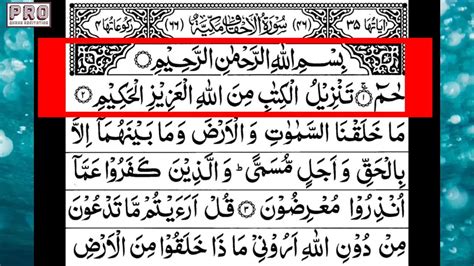 PRO
QURAN RECITATION
اٰیَاتُهَا ٣٥ (٤٦) سُوْرَةُ الْاَحْقَافِ مَكِّیَّةٌ (٦٦) رُكُوْعَاتُهَا ٤
بِسْمِ اللّٰهِ الرَّحْمٰنِ الرَّحِیْمِ
حٰمٓ ۚ ۝١ تَنْزِیْلُ الْكِتٰبِ مِنَ اللّٰهِ الْعَزِیْزِ الْحَكِیْمِ ۝٢
مَا خَلَقْنَا السَّمٰوٰتِ وَ الْاَرْضَ وَ مَا بَیْنَهُمَاۤ اِلَّا
بِالْحَقِّ وَ اَجَلٍ مُّسَمًّیؕ وَ الَّذِیْنَ كَفَرُوْا عَمَّاۤ
اُنْذِرُوْا مُعْرِضُوْنَ ۝٣ قُلْ اَرَءَیْتُمْ مَّا تَدْعُوْنَ
مِنْ دُوْنِ اللّٰهِ اَرُوْنِیْ مَا ذَا خَلَقُوْا مِنَ الْاَرْضِ